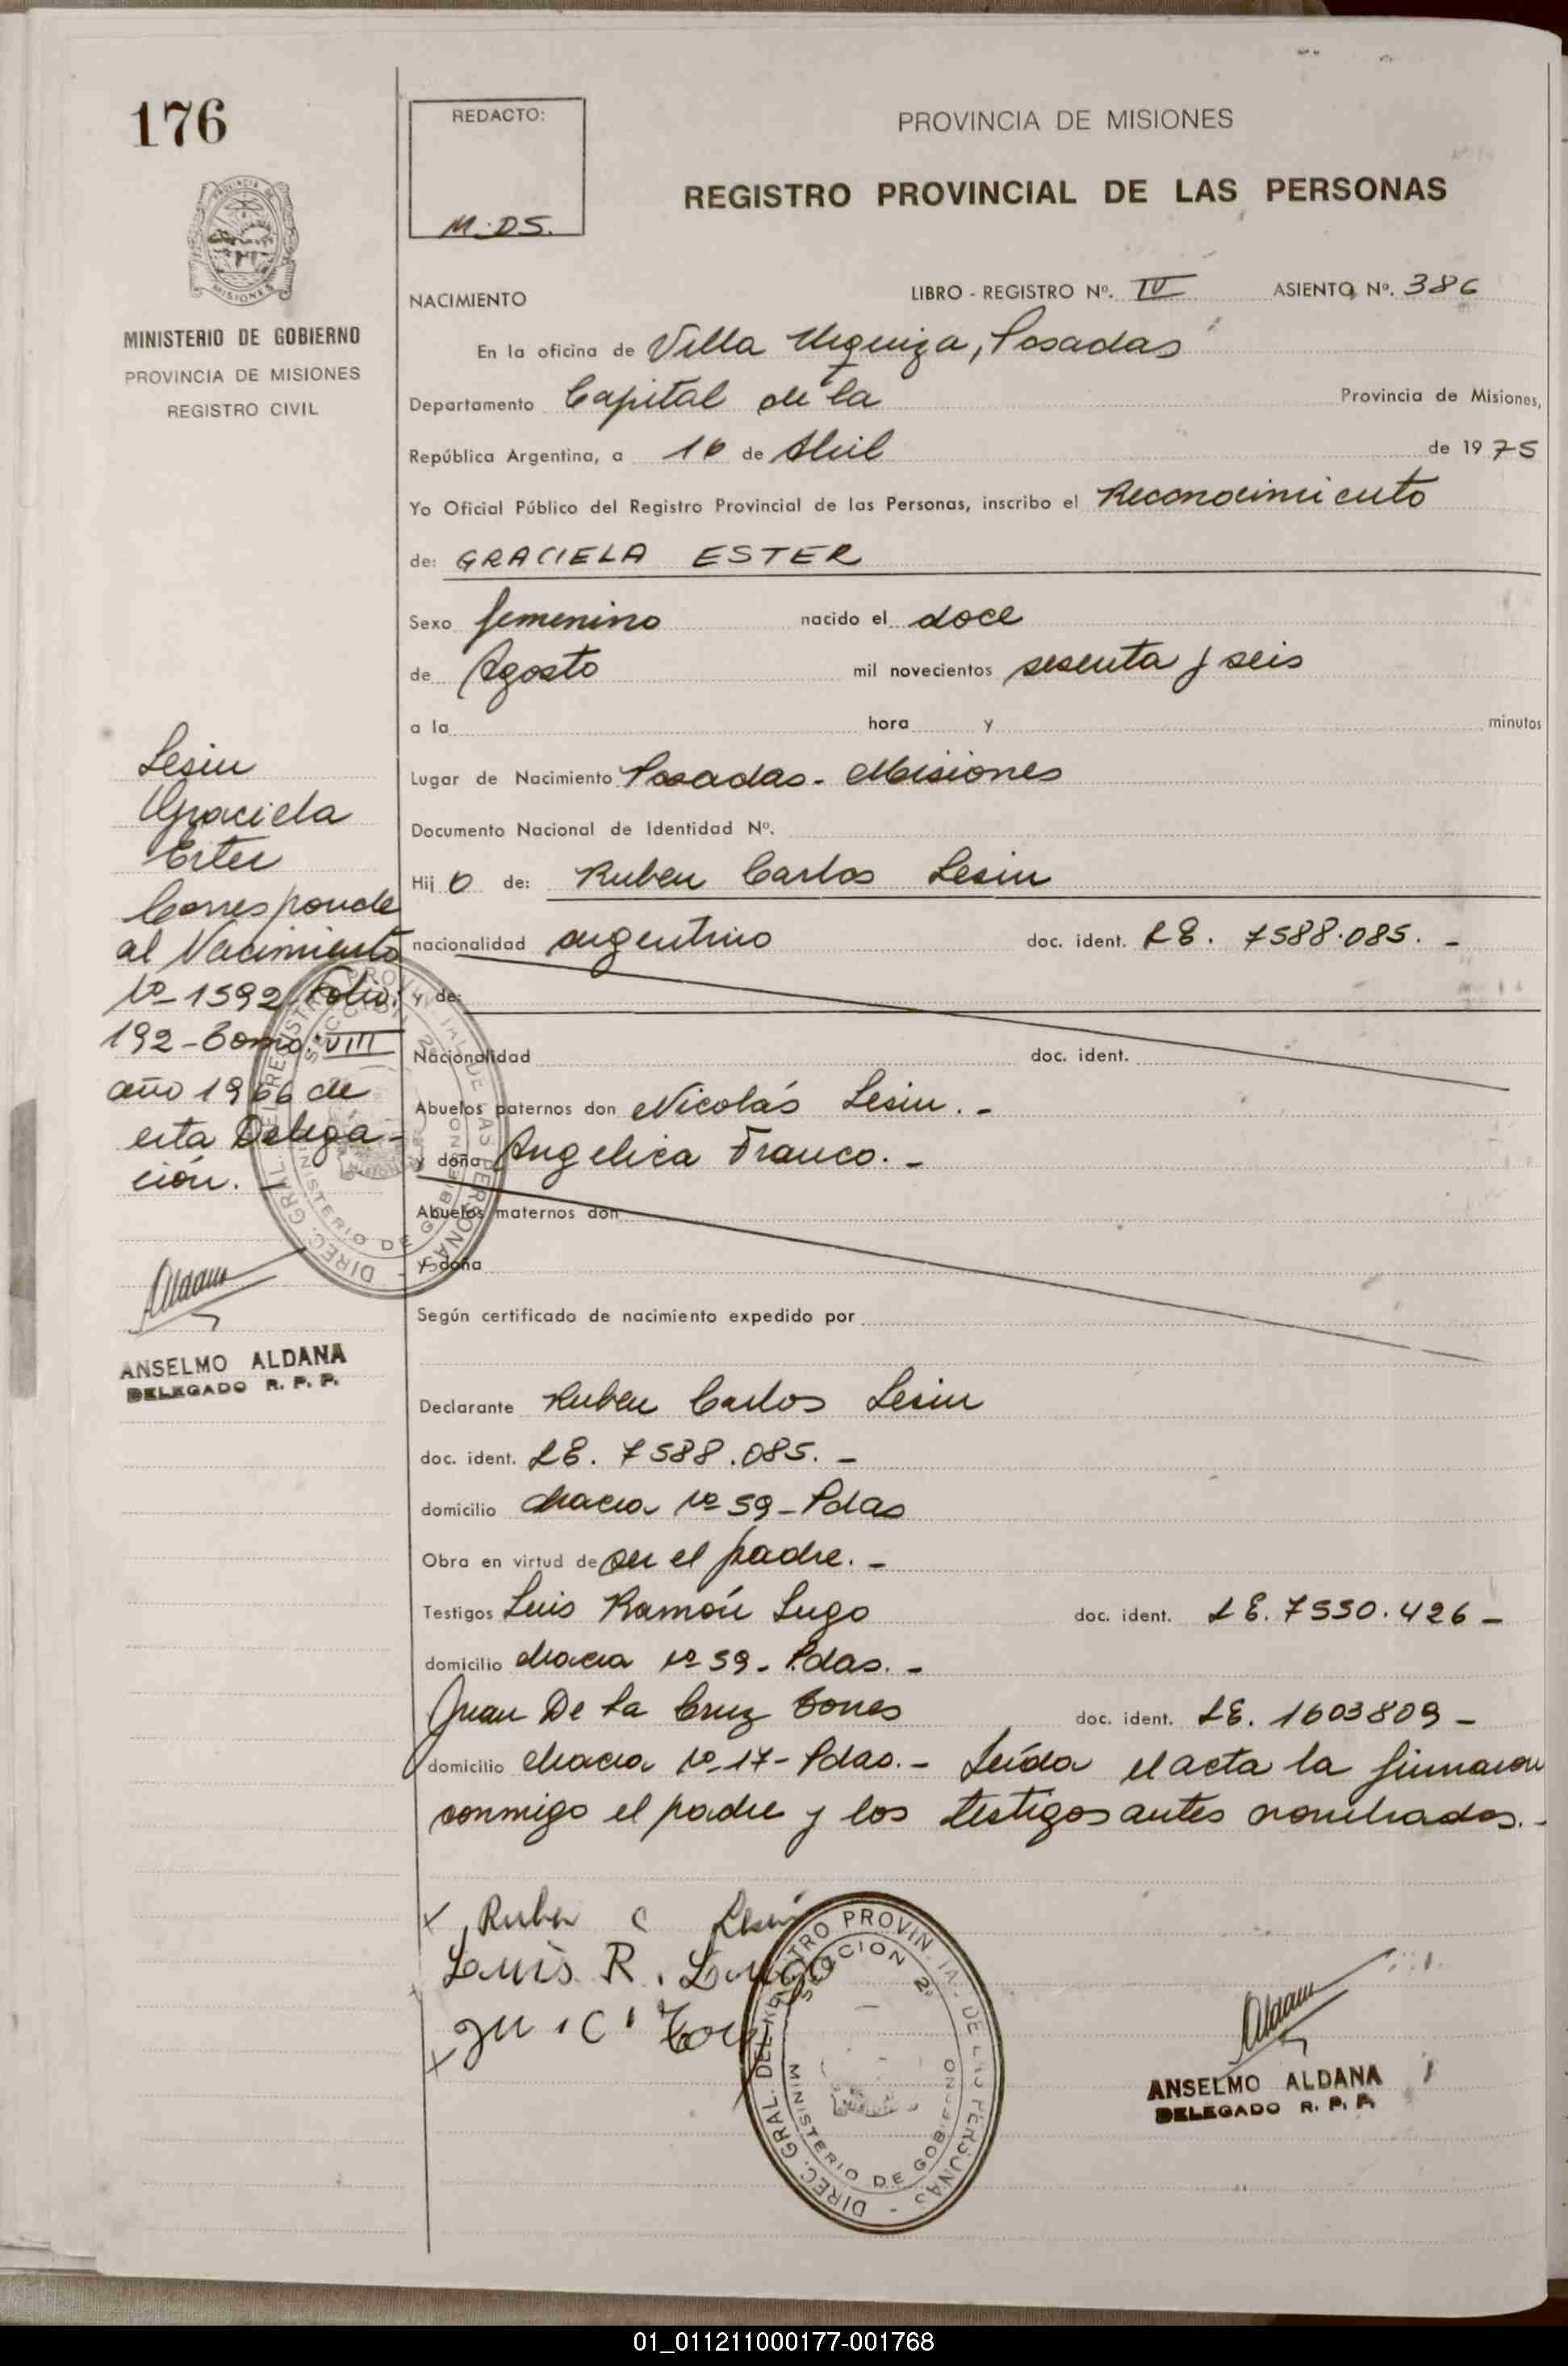 176
REDACTO:
M.DS.
PROVINCIA DE MISIONES
REGISTRO PROVINCIAL DE LAS PERSONAS
MINISTERIO DE GOBIERNO
PROVINCIA DE MISIONES
REGISTRO CIVIL
NACIMIENTO LIBRO - REGISTRO Nº. IV ASIENTO Nº. 386
En la oficina de Villa Urquiza, Posadas
Departamento Capital de la Provincia de Misiones,
República Argentina, a 16 de Abril de 1975
Yo Oficial Público del Registro Provincial de las Personas, inscribo el Reconocimiento
de: GRACIELA ESTER
Sexo femenino nacido el doce
de Agosto mil novecientos sesenta y seis
a la hora y minutos
Lugar de Nacimiento Posadas - Misiones
Documento Nacional de Identidad Nº.
Hij o de: Ruben Carlos Lesiu
nacionalidad argentino doc. ident. LE. 7588.085. -
y de:
Nacionalidad doc. ident.
Abuelos paternos don Nicolás Lesiu. -
y doña Angelica Franco. -
Abuelos maternos don
y doña
Según certificado de nacimiento expedido por
Declarante Ruben Carlos Lesiu
doc. ident. LE. 7588.085. -
domicilio chacra Nº 59 - Pdas
Obra en virtud de ser el padre. -
Testigos Luis Ramón Lugo doc. ident. LE. 7550.426 -
domicilio chacra Nº 59 - Pdas. -
Juan De La Cruz Torres doc. ident. LE. 1603809 -
domicilio chacra Nº 17 - Pdas. - Leída el acta la firmaron
conmigo el padre y los testigos antes nombrados. -
Lesiu
Graciela
Ester
Corresponde
al Nacimiento
Nº 1592 Folio:
192 - Tomo: VIII
año 1966 de
esta Delega-
ción. -
Aldana
ANSELMO ALDANA
DELEGADO R. P. P.
DIREC. GRAL. DEL REGISTRO PROVINCIAL DE LAS PERSONAS -
SECCION 2ª
MINISTERIO DE GOBIERNO
x Ruben C Lesiu
Luis R. Lugo
x
DIREC. GRAL. DEL REGISTRO PROVINCIAL DE LAS PERSONAS -
SECCION 2ª
MINISTERIO DE GOBIERNO
Aldana
ANSELMO ALDANA
DELEGADO R. P. P.
01_011211000177-001768